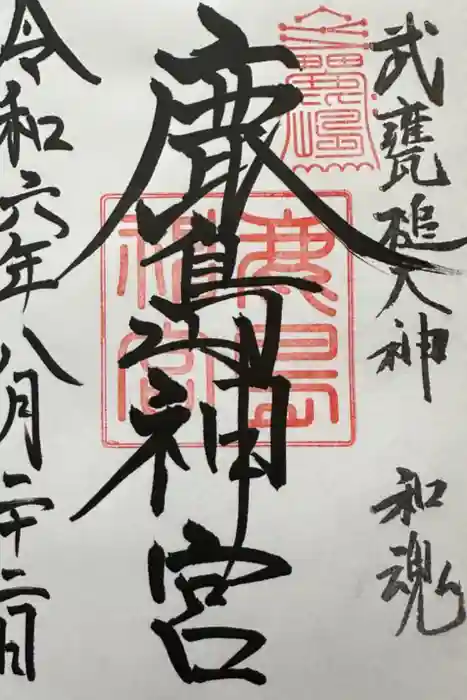 武甕槌大神
和魂
鹿島神宮
鹿島神宮
令和六年八月二十二日